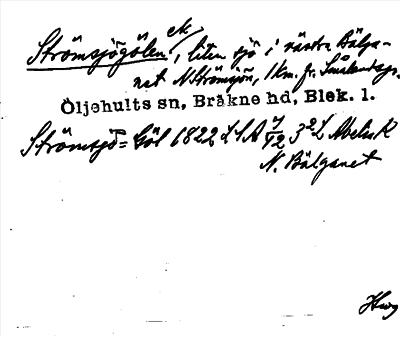 Strömsjögölen ek, liten sjö i västra Bälga-
net N Strömsjön, 1 km. fr. Smålandsgr.
Öljehults sn, Bräkne hd, Blek. l.
Strömsjö= Göl 1822 LSA
N. Bälganet